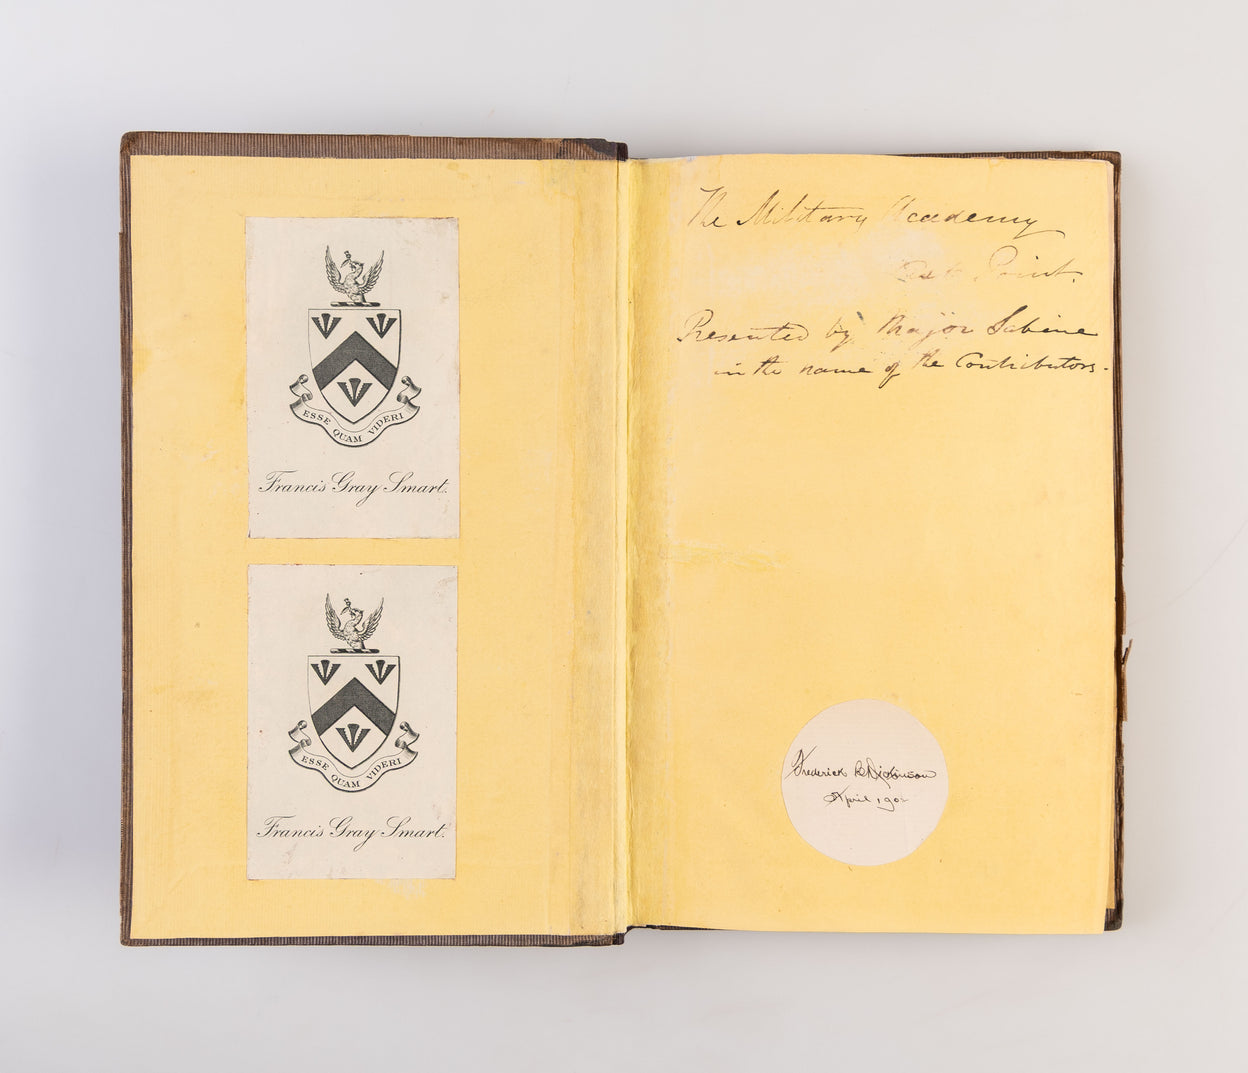 ESSE QUAM VIDERI
Francis Gray Smart.
ESSE QUAM VIDERI
Francis Gray Smart.
The Military Academy
Point.
Presented by Major Sabine
in the name of the Contributors.
Frederick
April 1902